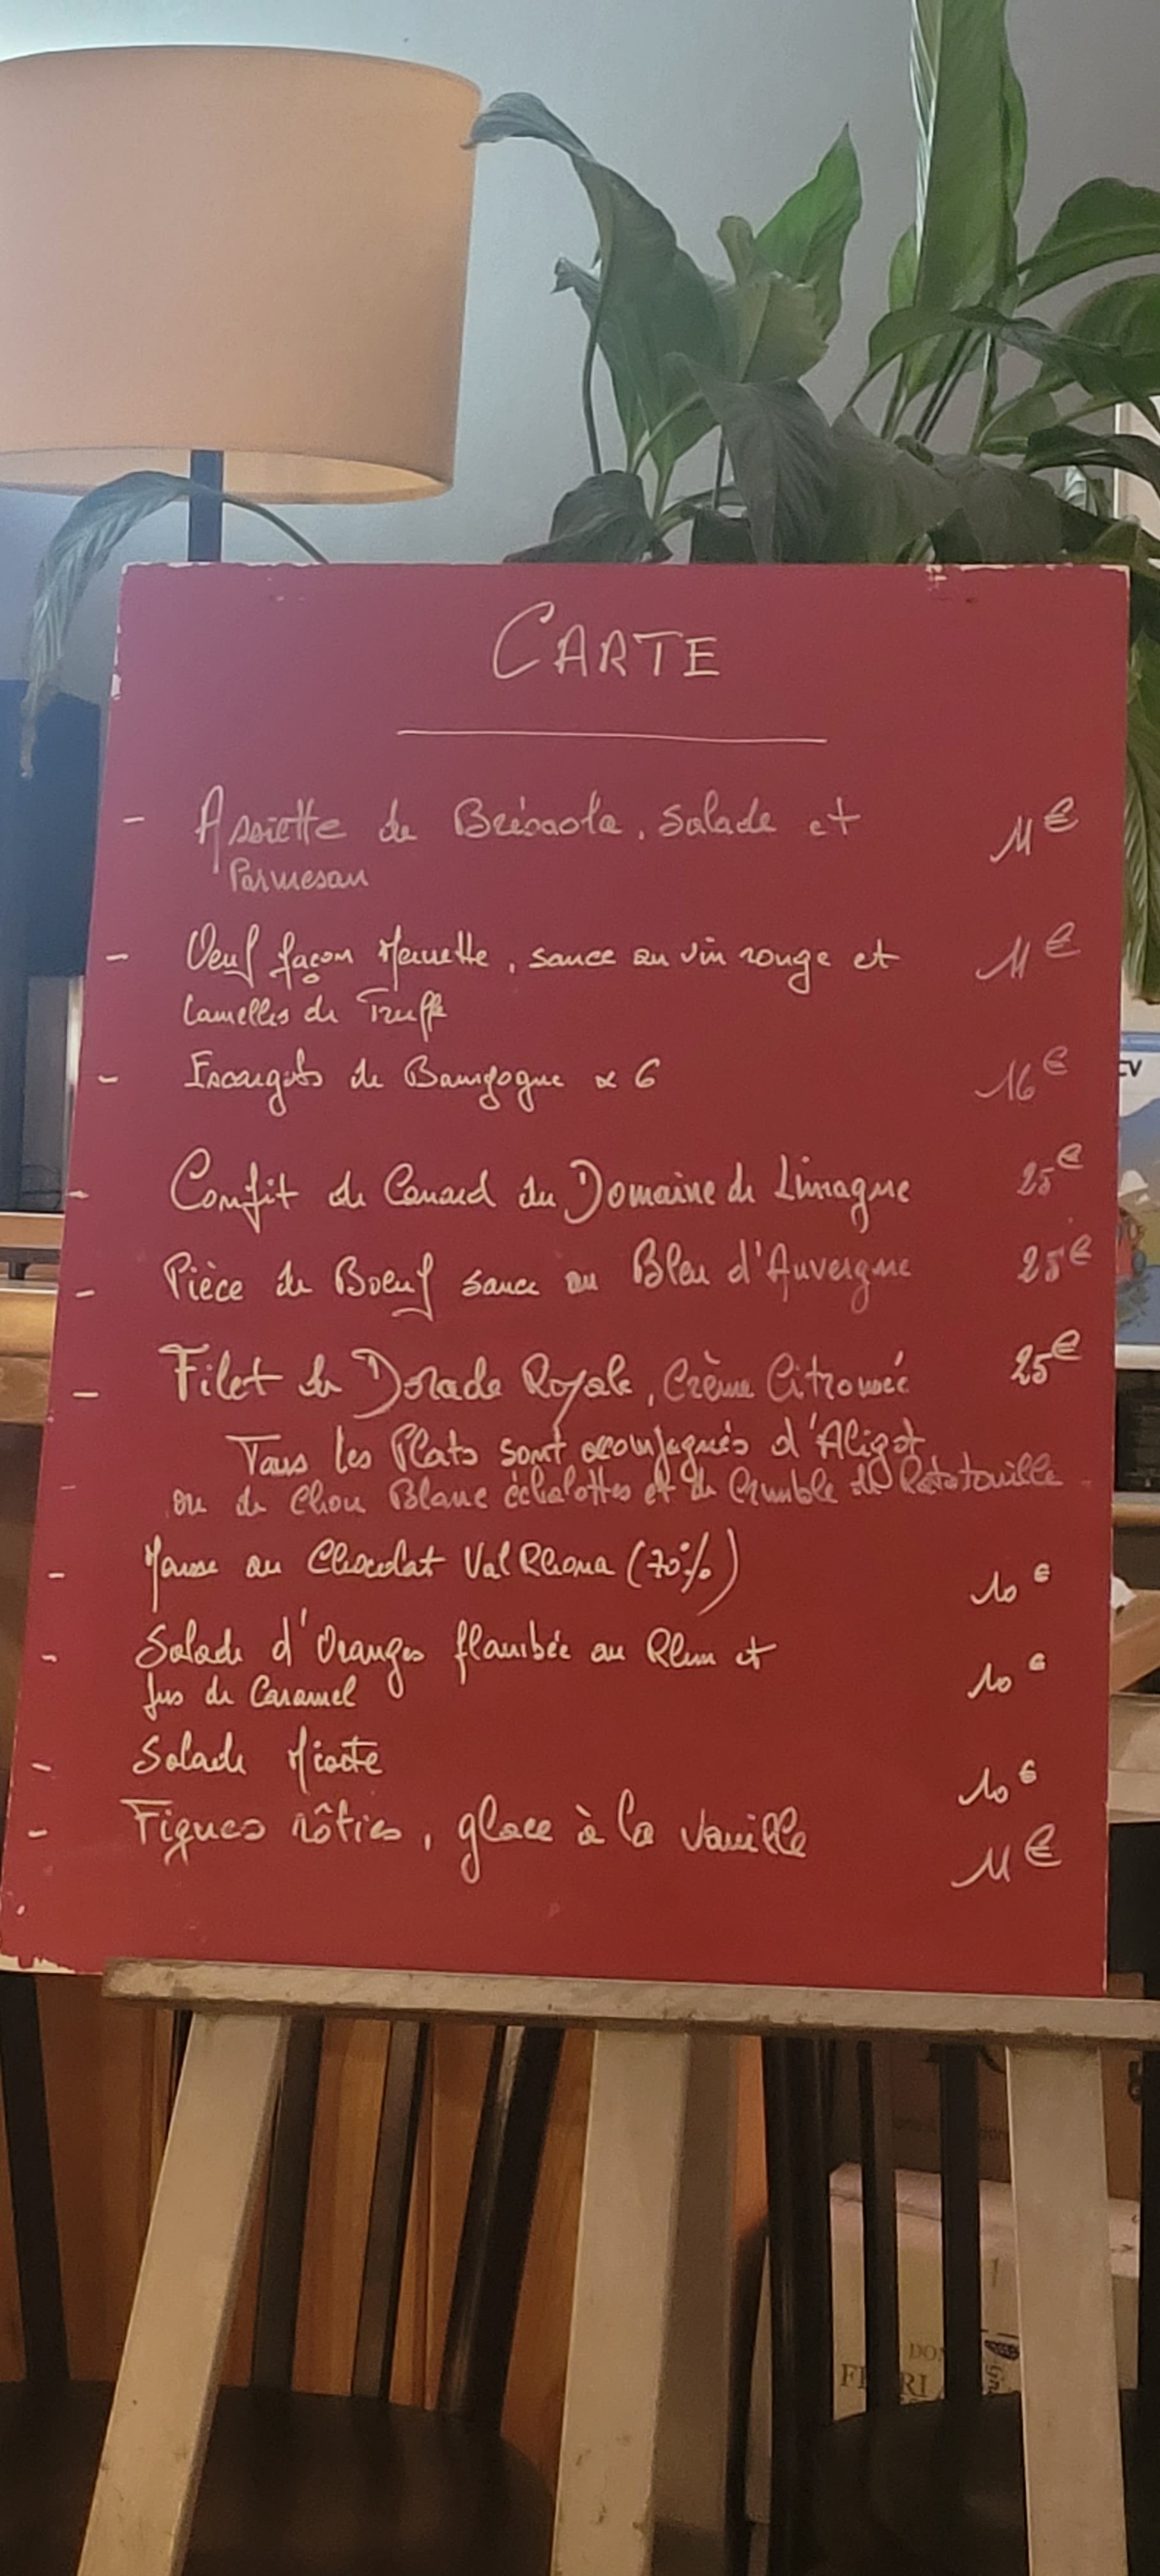 CARTE
- Assiette de Brésaola, Salade et 11€
Parmesan
- Oeuf façon Meurette, sauce au vin rouge et 11€
Lamelles de Truffe
- Escargots de Bourgogne x 6 16€
- Confit de Canard du Domaine de Limagne 25€
- Pièce de Boeuf sauce au Bleu d'Auvergne 25€
- Filet de Dorade Royale, Crème Citronnée 25€
Tous les Plats sont accompagnés d'Aligot
ou de Chou Blanc échalottes et de Crumble de Ratatouille
- Mousse au Chocolat ValRhona (70%) 10€
- Salade d'Oranges flambée au Rhum et 10€
Jus de Caramel
- Salade Mixte 10€
- Figues rôties, glace à la Vanille 11€
CV